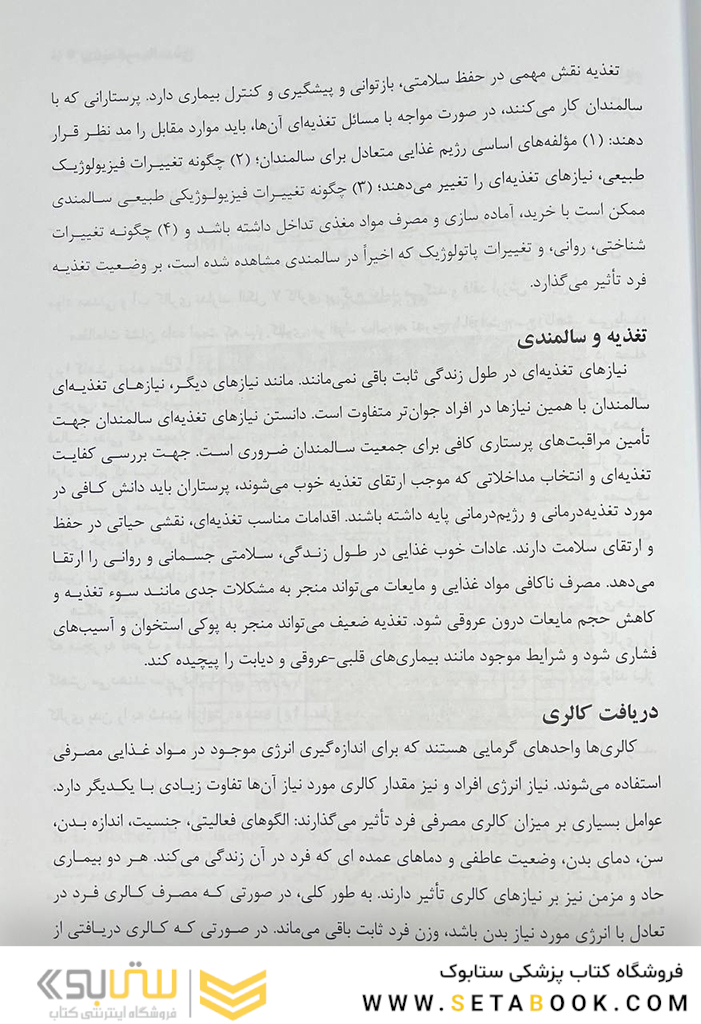 تغذیه نقش مهمی در حفظ سلامتی، بازتوانی و پیشگیری و کنترل بیماری دارد. پرستارانی که با
سالمندان کار می‌کنند، در صورت مواجه با مسائل تغذیه‌ای آن‌ها، باید موارد مقابل را مد نظر قرار
دهند: (۱) مؤلفه‌های اساسی رژیم غذایی متعادل برای سالمندان؛ (۲) چگونه تغییرات فیزیولوژیک
طبیعی، نیازهای تغذیه‌ای را تغییر می‌دهند؛ (۳) چگونه تغییرات فیزیولوژیکی طبیعی سالمندی
ممکن است با خرید، آماده سازی و مصرف مواد مغذی تداخل داشته باشد و (۴) چگونه تغییرات
شناختی، روانی، و تغییرات پاتولوژیک که اخیراً در سالمندی مشاهده شده است، بر وضعیت تغذیه
فرد تأثیر می‌گذارد.
تغذیه و سالمندی
نیازهای تغذیه‌ای در طول زندگی ثابت باقی نمی‌مانند. مانند نیازهای دیگر، نیازهای تغذیه‌ای
سالمندان با همین نیازها در افراد جوان‌تر متفاوت است. دانستن نیازهای تغذیه‌ای سالمندان جهت
تأمین مراقبت‌های پرستاری کافی برای جمعیت سالمندان ضروری است. جهت بررسی کفایت
تغذیه‌ای و انتخاب مداخلاتی که موجب ارتقای تغذیه خوب می‌شوند، پرستاران باید دانش کافی در
مورد تغذیه‌درمانی و رژیم‌درمانی پایه داشته باشند. اقدامات مناسب تغذیه‌ای، نقشی حیاتی در حفظ
و ارتقای سلامت دارند. عادات خوب غذایی در طول زندگی، سلامتی جسمانی و روانی را ارتقا
می‌دهد. مصرف ناکافی مواد غذایی و مایعات می‌تواند منجر به مشکلات جدی مانند سوء تغذیه و
کاهش حجم مایعات درون عروقی شود. تغذیه ضعیف می‌تواند منجر به پوکی استخوان و آسیب‌های
فشاری شود و شرایط موجود مانند بیماری‌های قلبی-عروقی و دیابت را پیچیده کند.
دریافت کالری
کالری‌ها واحدهای گرمایی هستند که برای اندازه‌گیری انرژی موجود در مواد غذایی مصرفی
استفاده می‌شوند. نیاز انرژی افراد و نیز مقدار کالری مورد نیاز آن‌ها تفاوت زیادی با یکدیگر دارد.
عوامل بسیاری بر میزان کالری مصرفی فرد تأثیر می‌گذارند: الگوهای فعالیتی، جنسیت، اندازه بدن،
سن، دمای بدن، وضعیت عاطفی و دماهای عمده ای که فرد در آن زندگی می‌کند. هر دو بیماری
حاد و مزمن نیز بر نیازهای کالری تأثیر دارند. به طور کلی، در صورتی که مصرف کالری فرد در
تعادل با انرژی مورد نیاز بدن باشد، وزن فرد ثابت باقی می‌ماند. در صورتی که کالری دریافتی از
فروشگاه کتاب پزشکی ستابوک
WWW.SETABOOK.COM
ستابوک
فروشگاه اینترنتی کتاب